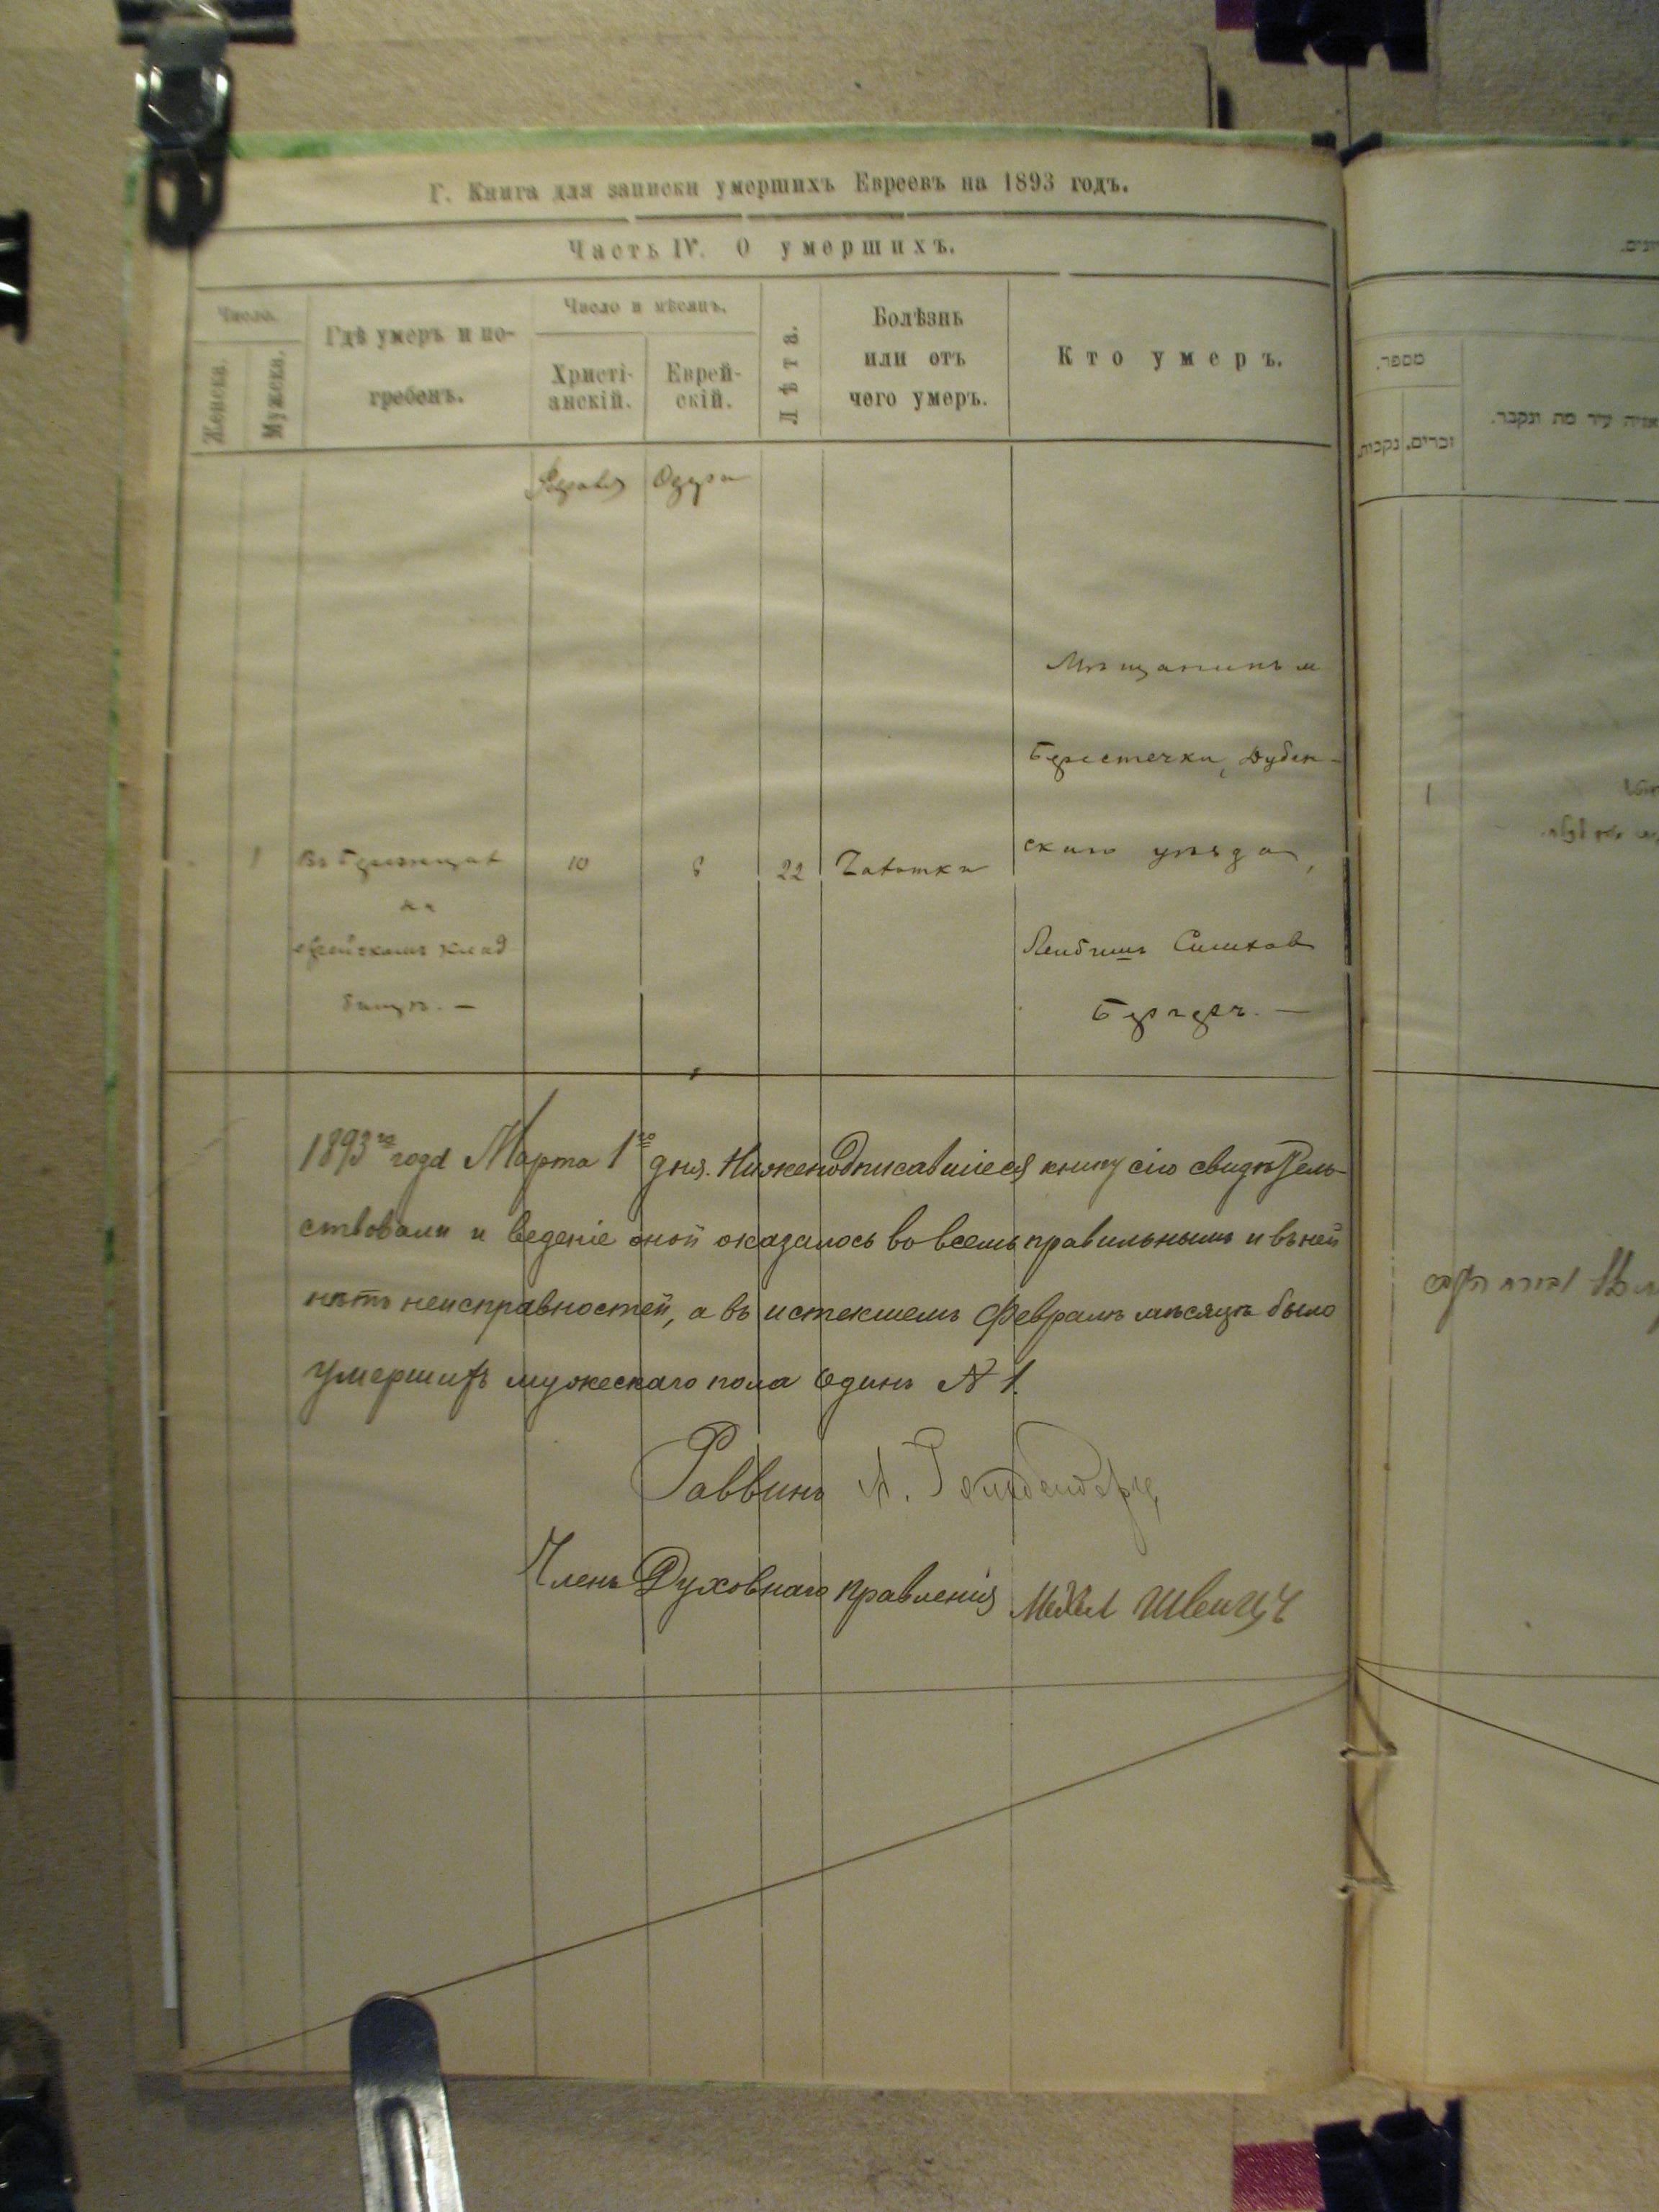 Г. Книга для записки умершихъ Евреевъ на 1893 годъ.
Часть IV. О умершихъ.
Число.
Женска.
Мужска.
Гдѣ умеръ и по-
гребенъ.
Число и мѣсяцъ.
Христі-
анскій.
Еврей-
скій.
Лѣта.
Болѣзнь
или отъ
чего умеръ.
Кто умеръ.
1
на
еврейскомъ клад
бищѣ. —
10
22
Чахотка
Мѣщанинъ м
Берестечки, Дубен-
скаго уѣзда,
Лейбишъ
1893го года Марта 1го дня. Нижеподписавшіеся книгу сію свидѣтель-
ствовали и веденіе оной оказалось во всемъ правильнымъ и въ ней
нѣтъ неисправностей, а въ истекшемъ Февралѣ мѣсяцѣ было
умершихъ мужескаго пола одинъ N 1.
Раввинъ А.
Членъ Духовнаго Правленія
מספר.
זכרים.
נקבות.
עיר מת ונקבר.
1